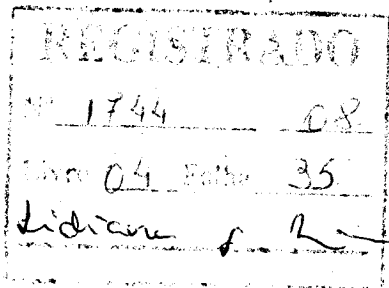 REGISTRADO
Nº 1744 08
Livro 04 Folha 35
Lidiane